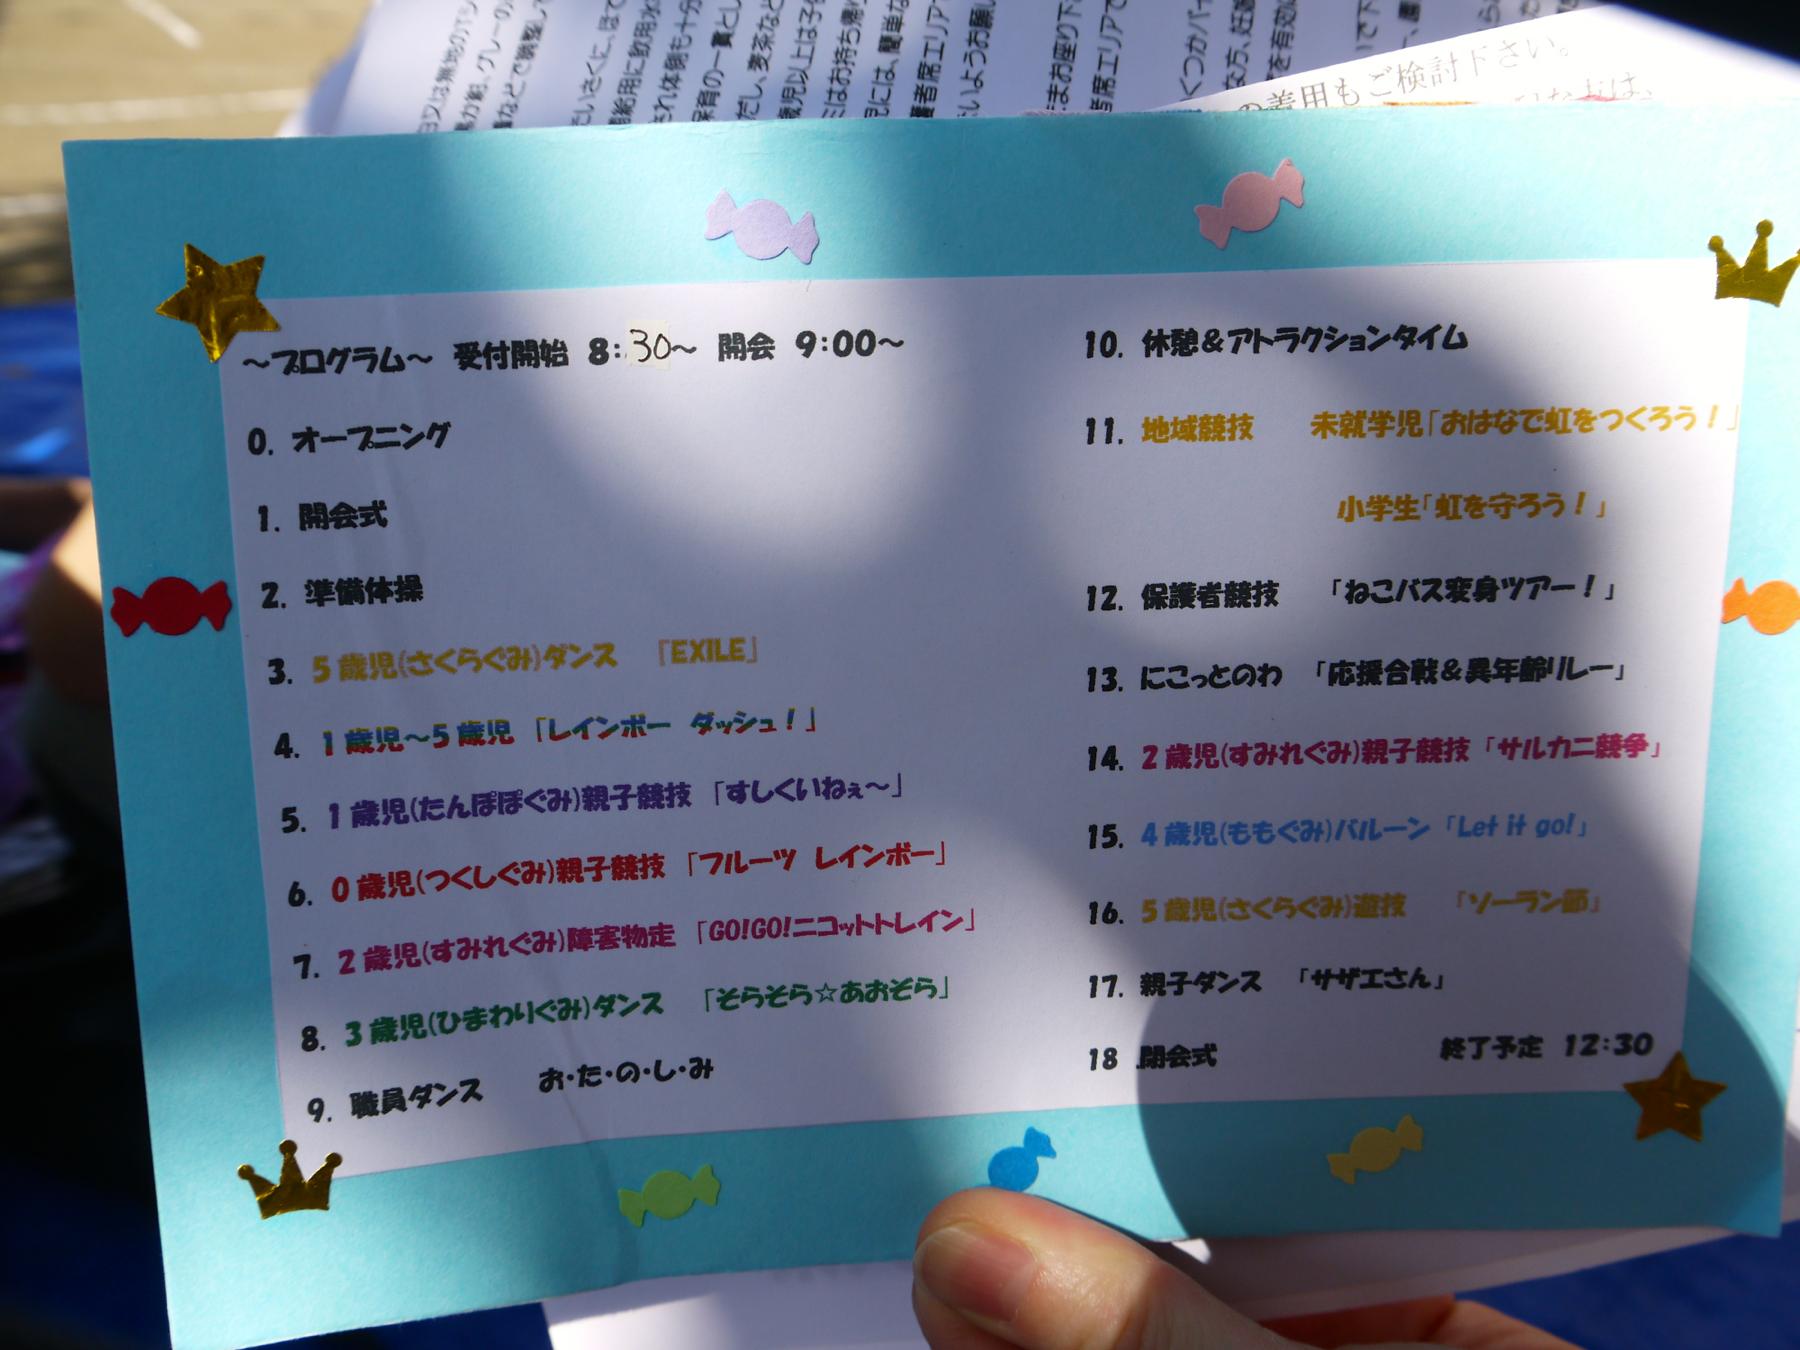 ～プログラム～ 受付開始 8:30～ 開会 9:00～
0. オープニング
1. 開会式
2. 準備体操
3. 5歳児(さくらぐみ)ダンス 「EXILE」
4. 1歳児～5歳児 「レインボー ダッシュ！」
5. 1歳児(たんぽぽぐみ)親子競技 「すしくいねぇ～」
6. 0歳児(つくしぐみ)親子競技 「フルーツ レインボー」
7. 2歳児(すみれぐみ)障害物走 「GO!GO!ニコットトレイン」
8. 3歳児(ひまわりぐみ)ダンス 「そらそら☆あおぞら」
9. 職員ダンス お・た・の・し・み
10. 休憩＆アトラクションタイム
11. 地域競技 未就学児「おはなで虹をつくろう！」
小学生「虹を守ろう！」
12. 保護者競技 「ねこバス変身ツアー！」
13. にこっとのわ 「応援合戦＆異年齢リレー」
14. 2歳児(すみれぐみ)親子競技「サルカニ競争」
15. 4歳児(ももぐみ)バルーン「Let it go!」
16. 5歳児(さくらぐみ)遊技 「ソーラン節」
17. 親子ダンス 「サザエさん」
18.閉会式 終了予定 12:30
の着用もご検討下さい。